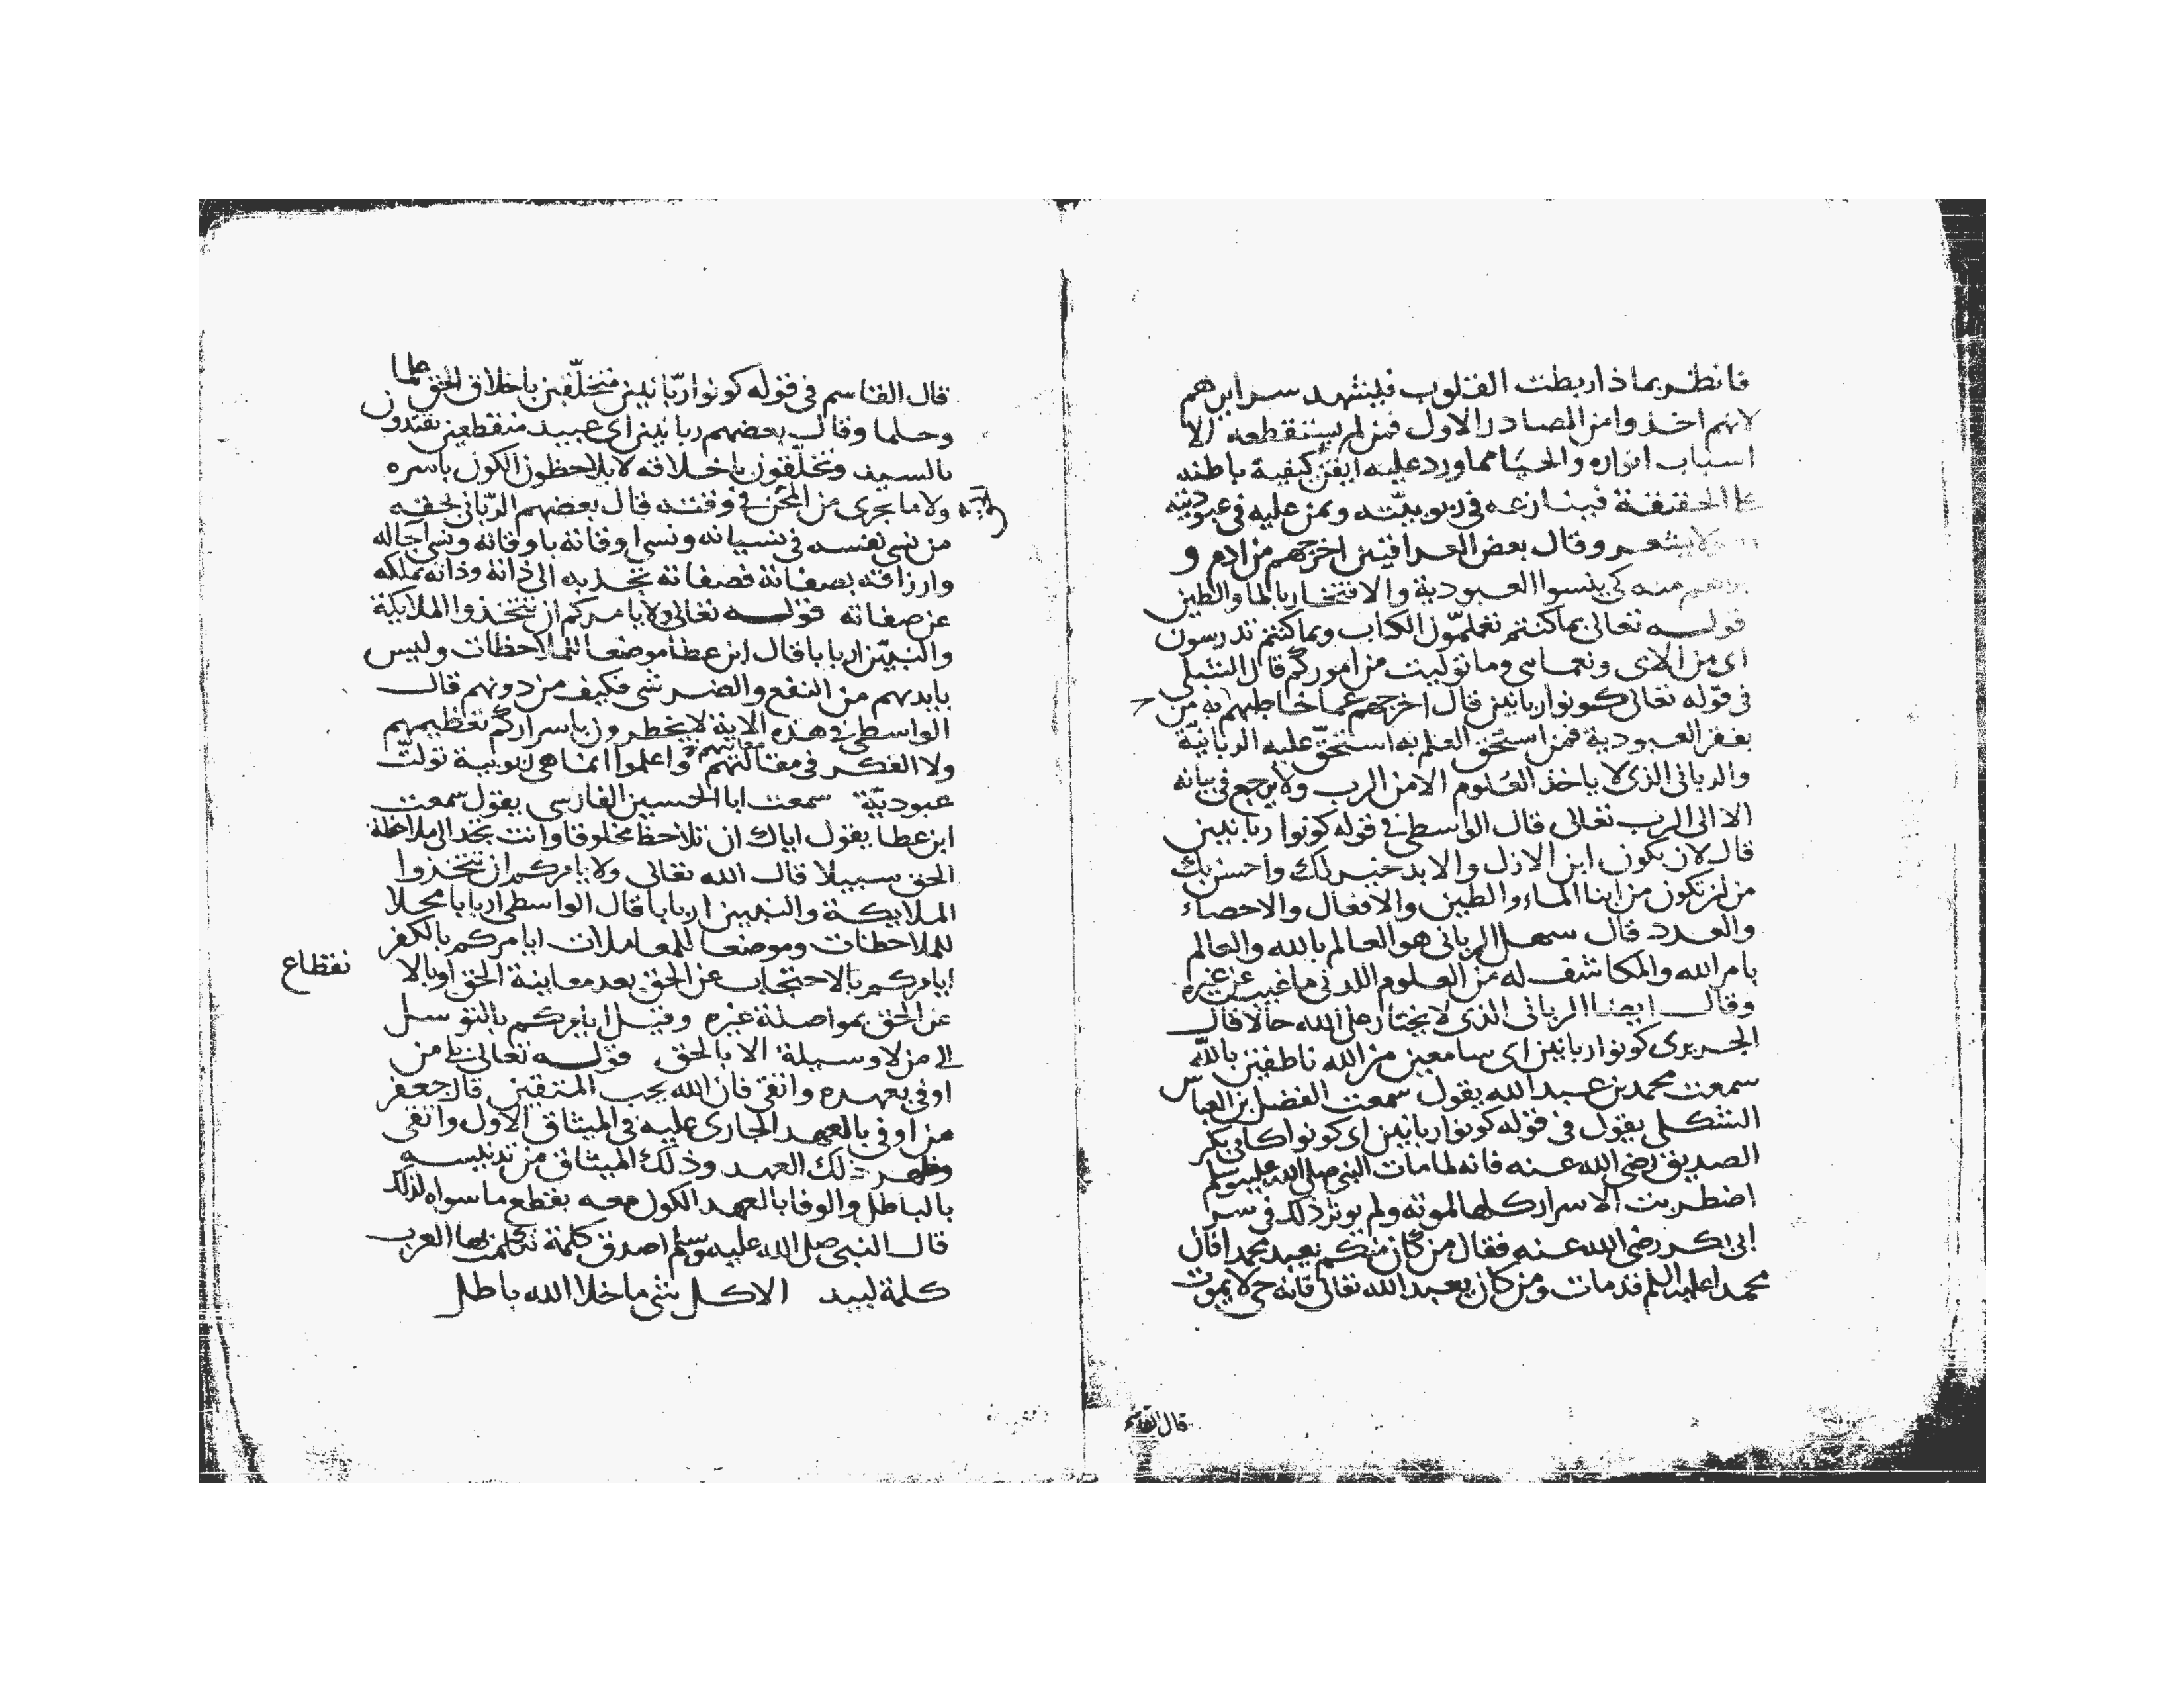 فانظر بماذا ربطت القلوب فليشهد سر ابرهم
لانهم اخذوا من المصادر الاول فمن لم يستقطعه الا
اسباب انواره والحيا مما ورد عليه ايقن كيفية باطنه
الحقيقة فينازعه في ربوبيته وتمن عليه في عبوديته
لا يشعر وقال بعض العراقيين اخرجهم من ادم و
منه كي ينسوا العبودية والافتخار بالما والطين
قوله تعالى بما كنتم تعلمون الكتاب وبما كنتم تدرسون
اى من الاى ونعماىى وما توليت من اموركم قال الشبلي
في قوله تعالى كونوا ربانين قال اخرجهم عما خاطبهم به من
بفقر العبودية فمن استحق العلم به استحق عليه الربانية
والربانى الذى لا ياخذ العلوم الا من الرب ولا يرجع في بيانه
الا الى الرب تعالى قال الواسطى في قوله كونوا ربانيين
قال لان تكون ابن الازل والابد خير لك واحسن بك
من لن تكون من ابنا الماء والطين والافعال والاحصاء
والعدد قال سهل الربانى هو العالم بالله والعالم
بامر الله والمكاشف له من العلوم اللدنى ما غيب عن غيره
وقال ايضا الربانى الذى لا يختار على الله حالا قال
الجريرى كونوا ربانين اى سامعين من الله ناطقين بالله
سمعت محمد بن عبد الله يقول سمعت الفضل بن العباس
الشكلى يقول في قوله كونوا ربانين اى كونوا كابى بكر
الصديق رضى الله عنه فانه لما مات النبي صلى الله عليه وسلم
اضطربت الاسرار كلها لموته ولم يوثر ذلك في سر
ابى بكر رضى الله عنه فقال من كان منكم يعبد محمدا فان
محمدا عليه السلم قد مات ومن كان يعبد الله تعالى فانه حى لا يموت
قال القاسم
قال القاسم في قوله كونوا ربانيين متخلقين باخلاق الحق علما
وحلما وقال بعضهم ربانيين اى عبيد منقطعين يقتدون
بالسيد وتخلقون باخلاقه لا يلاحظون الكون باسره
ولا ما يجرى من المحن في وقته قال بعضهم الربانى بحقه
من نسى نفسه في نسيانه ونسى اوقاته باوقاته ونسى اجاله
وارزاقه بصفاته فصفاته تجذبه الى ذاته وذاته تملكه
عن صفاته قوله تعالى ولا يامركم ان تتخذوا الملايكة
والنبين اربابا قال ابن عطا موضعا للملاحظات وليس
بايديهم من النفع والضر شى فكيف من دونهم قال
الواسطى في هذه الاية لا يخطرون باسراركم تعظيمهم
ولا الفكر في مقالتهم واعلموا انما هى ربوبية تولت
عبودية سمعت ابا الحسين الفارسى يقول سمعت
ابن عطا يقول اياك ان تلاحظ مخلوقا وانت تجد الى ملاحظة
الحق سبيلا قال الله تعالى ولا يامركم ان تتخذوا
الملايكة والنبيين اربابا قال الواسطى اربابا محلا
للملاحظات وموضعا للمعاملات ايامركم بالكفر
ايامركم بالاحتجاب عن الحق بعد معاينة الحق او بالا
نقطاع
عن الحق بمواصلة غيره وقيل ايامركم بالتوسل
الى من لا وسيلة الا بالحق قوله تعالى بلى من
اوفى بعهده واتقى فان الله يحب المتقين قال جعفر
من اوفى بالعهد الجارى عليه في الميثاق الاول واتقى
وطهر ذلك العهد وذلك الميثاق من تدنيسه
بالباطل والوفا بالعهد الكون معه بقطع ما سواه لذلك
قال النبي صلى الله عليه وسلم اصدق كلمة تكلمت بها العرب
كلمة لبيد الا كل شى ما خلا الله باطل